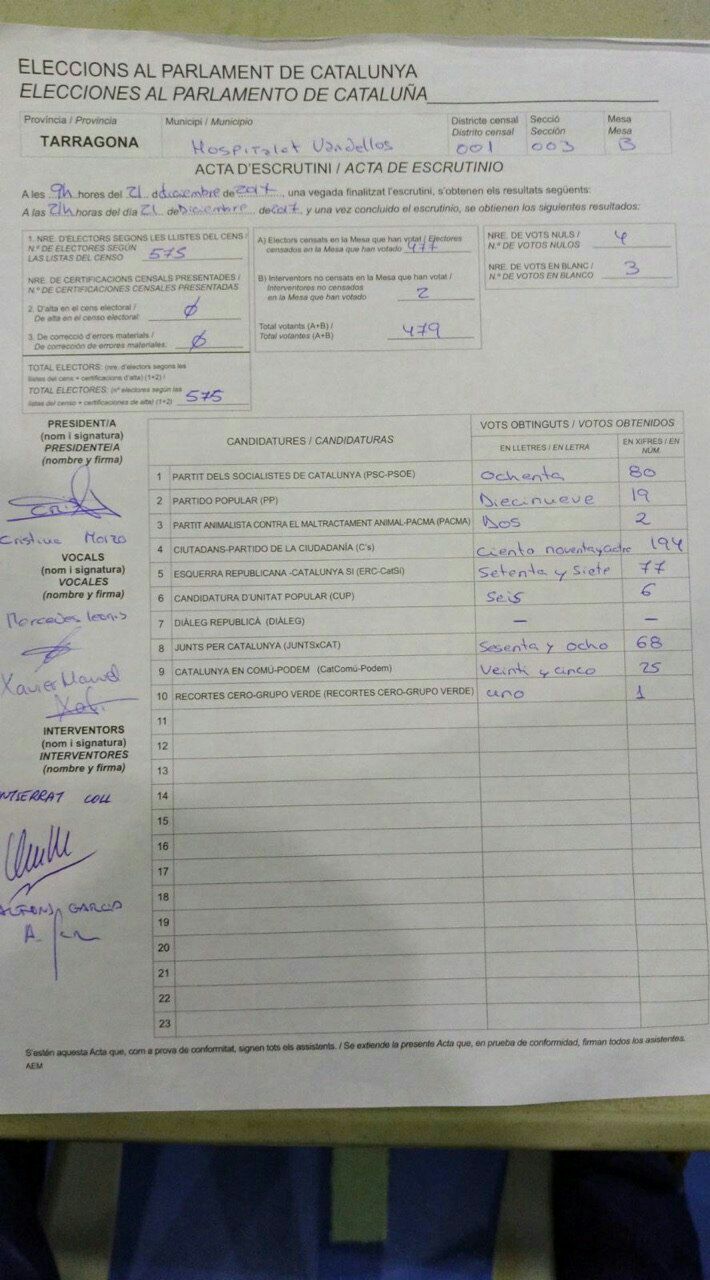 ELECCIONS AL PARLAMENT DE CATALUNYA
ELECCIONES AL PARLAMENTO DE CATALUÑA
Província / Provincia Municipi / Municipio Districte censal Secció Mesa
Distrito censal Sección Mesa
TARRAGONA Hospitalet Vandellos 001 003 B
ACTA D'ESCRUTINI / ACTA DE ESCRUTINIO
A les 9h hores del 21 d diciembre de 2017, una vegada finalitzat l'escrutini, s'obtenen els resultats següents:
A las 21h horas del día 21 de Diciembre de 2017, y una vez concluido el escrutinio, se obtienen los siguientes resultados:
1. NRE. D'ELECTORS SEGONS LES LLISTES DEL CENS /
N.º DE ELECTORES SEGÚN
LAS LISTAS DEL CENSO 575
NRE. DE CERTIFICACIONS CENSALS PRESENTADES /
N.º DE CERTIFICACIONES CENSALES PRESENTADAS
2. D'alta en el cens electoral /
De alta en el censo electoral: Ø
3. De correcció d'errors materials /
De corrección de errores materiales: Ø
TOTAL ELECTORS: (nre. d'electors segons les
llistes del cens + certificacions d'alta) (1+2) /
TOTAL ELECTORES: (nº electores según las
listas del censo + certificaciones de alta) (1+2) 575
A) Electors censats en la Mesa que han votat / Electores
censados en la Mesa que han votado 477
B) Interventors no censats en la Mesa que han votat /
Interventores no censados
en la Mesa que han votado 2
Total votants (A+B) /
Total votantes (A+B) 479
NRE. DE VOTS NULS /
N.º DE VOTOS NULOS 4
NRE. DE VOTS EN BLANC /
N.º DE VOTOS EN BLANCO 3
PRESIDENT/A
(nom i signatura)
PRESIDENTE/A
(nombre y firma)
Cristina
VOCALS
(nom i signatura)
VOCALES
(nombre y firma)
Mercedes
Xavier
INTERVENTORS
(nom i signatura)
INTERVENTORES
(nombre y firma)
NTSERRAT COLL
GARCIA
CANDIDATURES / CANDIDATURAS VOTS OBTINGUTS / VOTOS OBTENIDOS
EN LLETRES / EN LETRA EN XIFRES / EN NÚM.
1 PARTIT DELS SOCIALISTES DE CATALUNYA (PSC-PSOE) Ochenta 80
2 PARTIDO POPULAR (PP) Diecinueve 19
3 PARTIT ANIMALISTA CONTRA EL MALTRACTAMENT ANIMAL-PACMA (PACMA) Dos 2
4 CIUTADANS-PARTIDO DE LA CIUDADANÍA (C's) Ciento noventa y 194
5 ESQUERRA REPUBLICANA -CATALUNYA SI (ERC-CatSí) Setenta y Siete 77
6 CANDIDATURA D'UNITAT POPULAR (CUP) Seis 6
7 DIÀLEG REPUBLICÀ (DIÀLEG) — —
8 JUNTS PER CATALUNYA (JUNTSxCAT) Sesenta y ocho 68
9 CATALUNYA EN COMÚ-PODEM (CatComú-Podem) Veinti y cinco 25
10 RECORTES CERO-GRUPO VERDE (RECORTES CERO-GRUPO VERDE) uno 1
11
12
13
14
15
16
17
18
19
20
21
22
23
S'estén aquesta Acta que, com a prova de conformitat, signen tots els assistents. / Se extiende la presente Acta que, en prueba de conformidad, firman todos los asistentes.
AEM